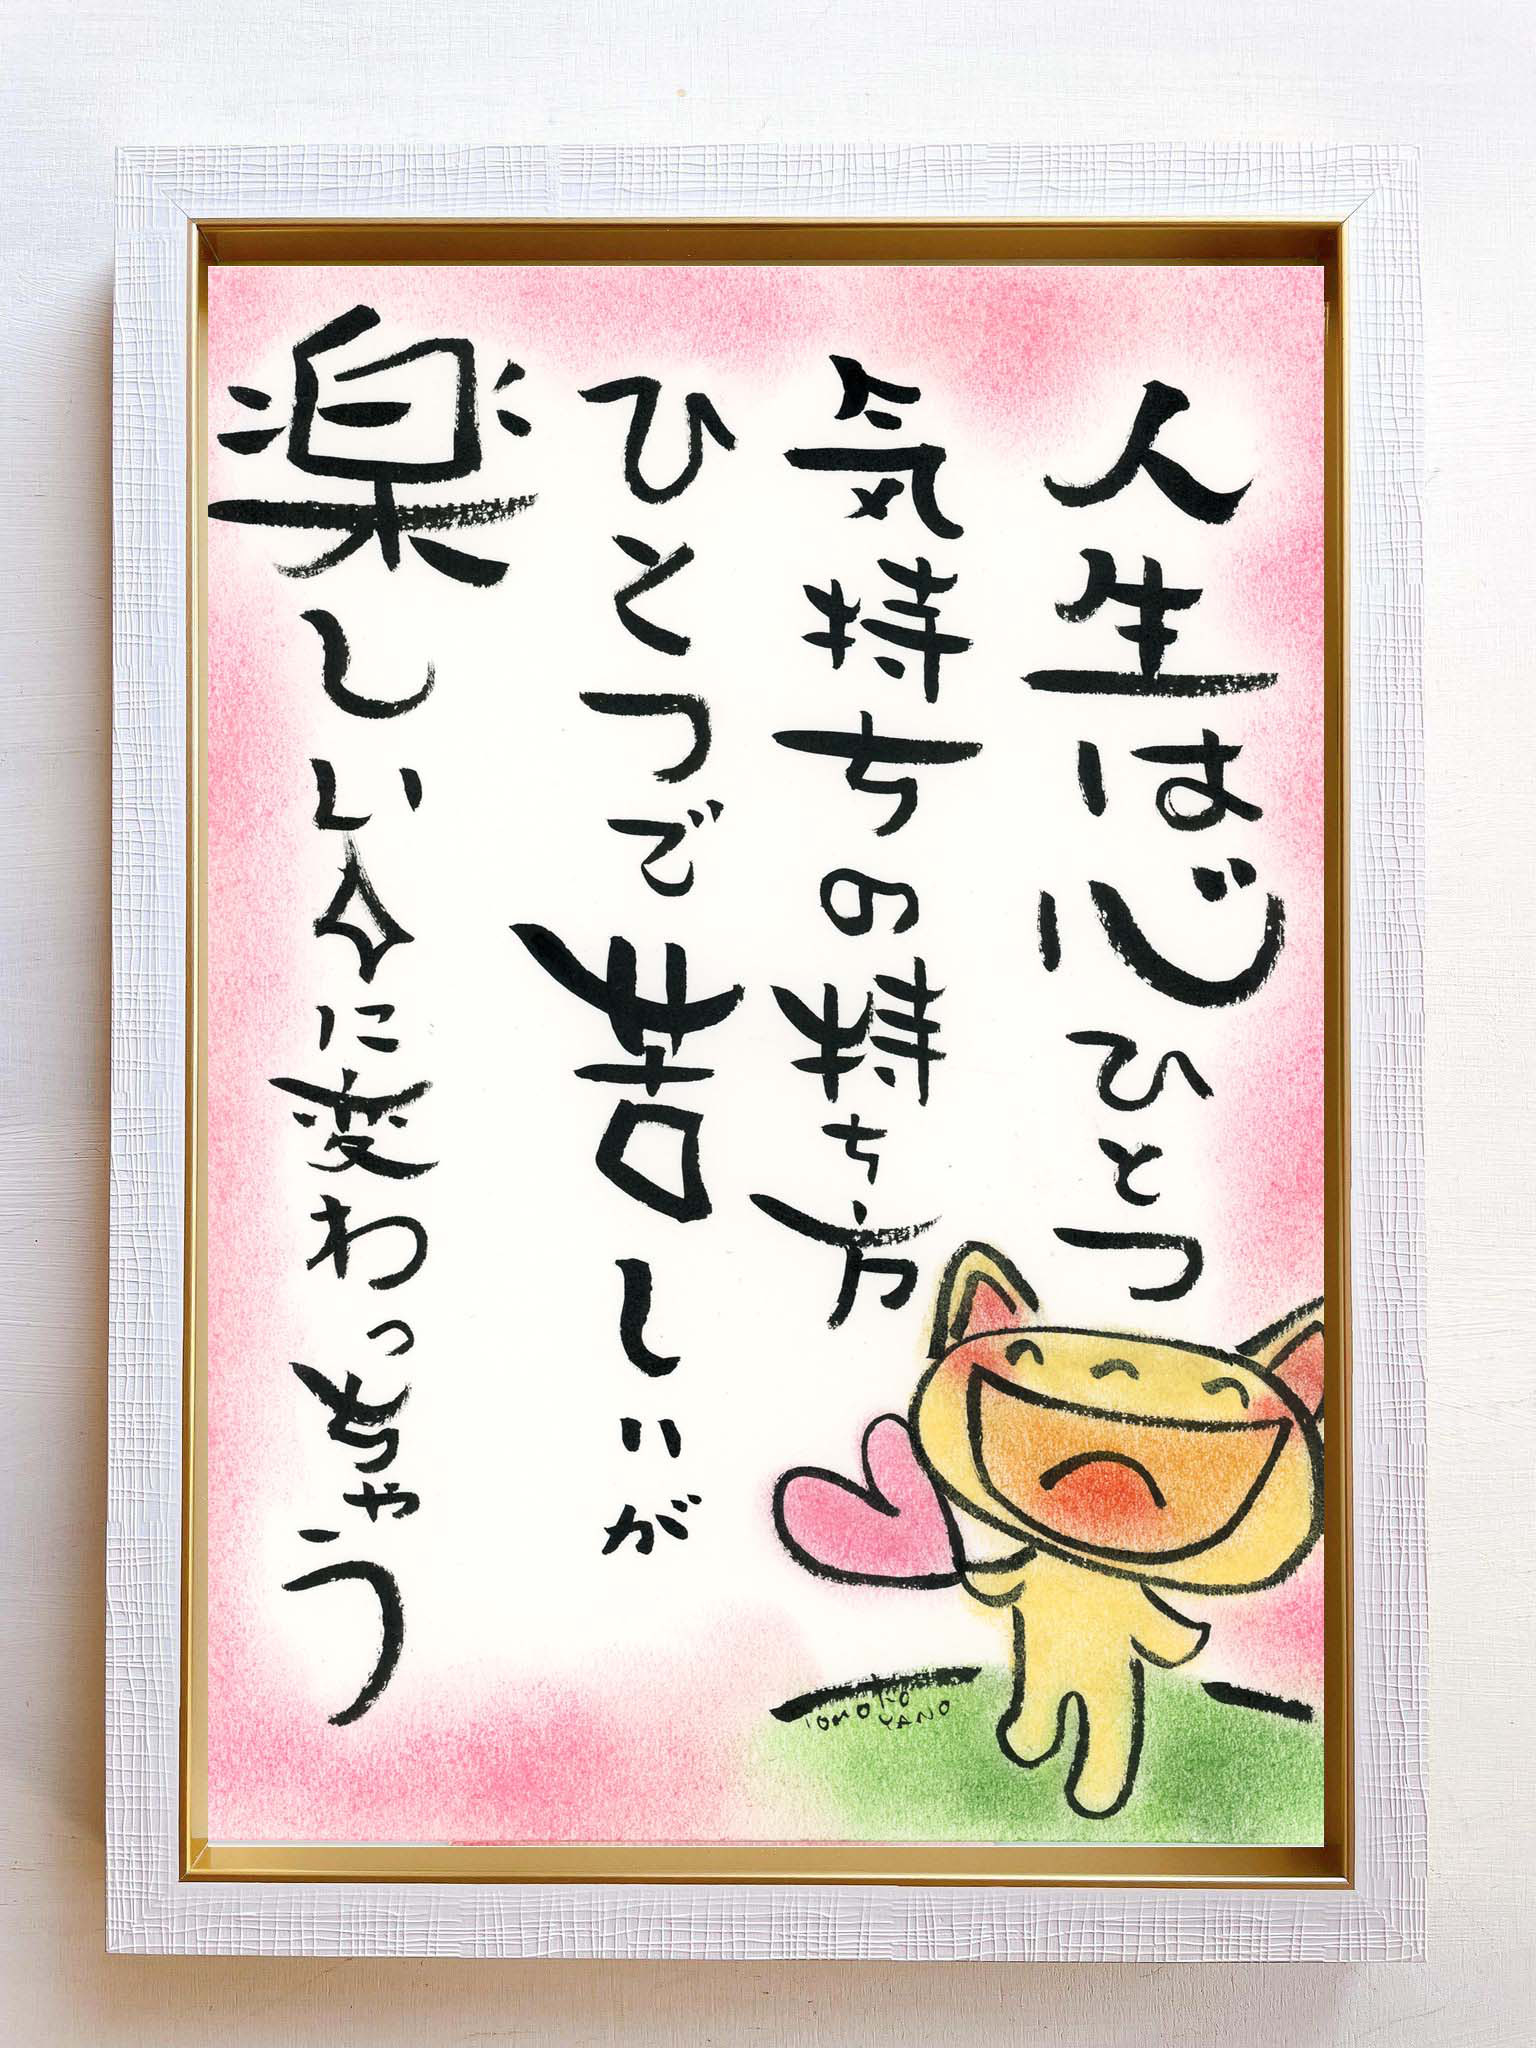 人生は心ひとつ
気持ちの持ち方
ひとつで苦しいが
楽しいに変わっちゃう
TOMOKO
YANO